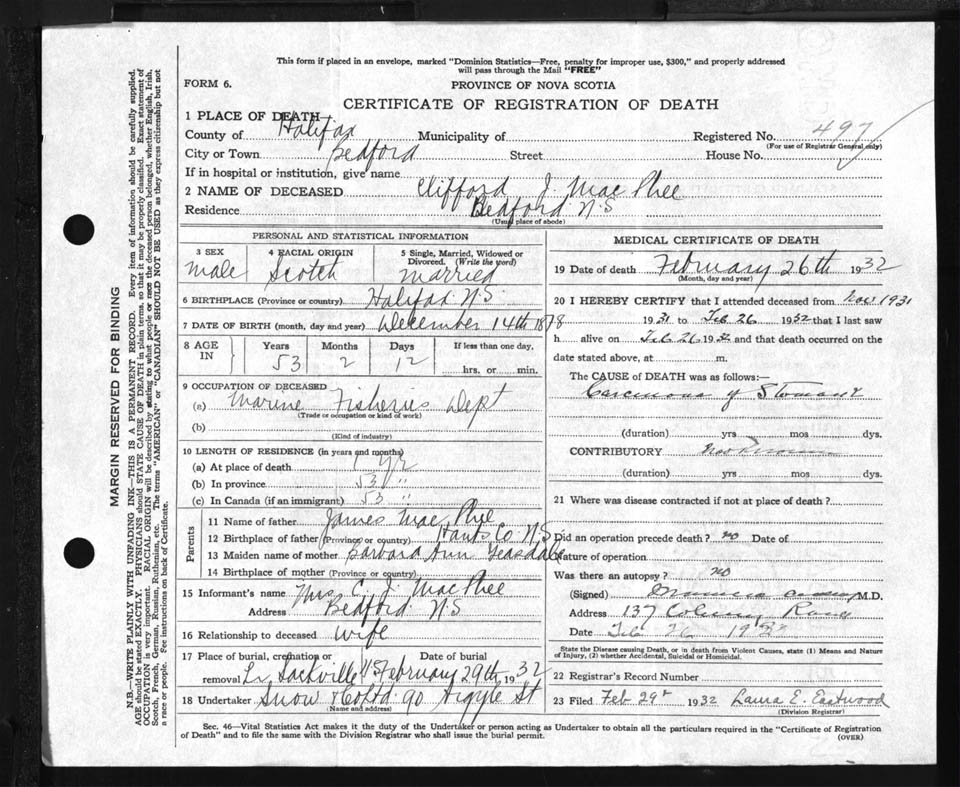 This form if placed in an envelope, marked "Dominion Statistics—Free, penalty for improper use, $300," and properly addressed
will pass through the Mail "FREE"
FORM 6.
PROVINCE OF NOVA SCOTIA
CERTIFICATE OF REGISTRATION OF DEATH
1 PLACE OF DEATH
County of Halifax Municipality of Registered No. 497
(For use of Registrar General only)
City or Town Bedford Street House No.
If in hospital or institution, give name
2 NAME OF DECEASED Clifford J. MacPhee
Residence Bedford N.S
(Usual place of abode)
PERSONAL AND STATISTICAL INFORMATION
3 SEX 4 RACIAL ORIGIN 5 Single, Married, Widowed or
Divorced. (Write the word)
Male Scotch Married
6 BIRTHPLACE (Province or country) Halifax N.S.
7 DATE OF BIRTH (month, day and year) December 14th 1878
8 AGE IN Years Months Days If less than one day,
53 2 12 hrs. or min.
9 OCCUPATION OF DECEASED
(a) Marine Fisheries Dept
(Trade or occupation or kind of work)
(b)
(Kind of industry)
10 LENGTH OF RESIDENCE (in years and months)
(a) At place of death 1 yr
(b) In province 53 "
(c) In Canada (if an immigrant) 53 "
Parents
11 Name of father James MacPhee
12 Birthplace of father (Province or country) Hants Co N.S.
13 Maiden name of mother Barbara Ann Teasdale
14 Birthplace of mother (Province or country)
15 Informant's name Mrs C. J. MacPhee
Address Bedford N.S
16 Relationship to deceased wife
17 Place of burial, cremation or Date of burial
removal L. Sackville NS February 29th 1932
18 Undertaker Snow & Co Ltd 90 Argyle St
(Name and address)
MEDICAL CERTIFICATE OF DEATH
19 Date of death February 26th 1932
(Month, day and year)
20 I HEREBY CERTIFY that I attended deceased from Nov 1931
1931 to Feb 26 1932 that I last saw
h alive on Feb 26 1932 and that death occurred on the
date stated above, at m.
The CAUSE of DEATH was as follows:—
Carcinoma of Stomach
(duration) yrs mos dys.
CONTRIBUTORY
(duration) yrs mos dys.
21 Where was disease contracted if not at place of death?
Did an operation precede death? no Date of
Nature of operation
Was there an autopsy? no
(Signed) M.D.
Address 137 Road
Date Feb 26 1932
State the Disease causing Death, or in death from Violent Causes, state (1) Means and Nature
of Injury, (2) whether Accidental, Suicidal or Homicidal.
22 Registrar's Record Number
23 Filed Feb 29 1932 Laura E. Eastwood
(Division Registrar)
Sec. 46—Vital Statistics Act makes it the duty of the Undertaker or person acting as Undertaker to obtain all the particulars required in the "Certificate of Registration
of Death" and to file the same with the Division Registrar who shall issue the burial permit.
(OVER)
MARGIN RESERVED FOR BINDING
N.B.—WRITE PLAINLY WITH UNFADING INK—THIS IS A PERMANENT RECORD. Every item of information should be carefully supplied.
AGE should be stated EXACTLY. PHYSICIANS should STATE CAUSE OF DEATH in plain terms, so that it may be properly classified. Exact statement of
OCCUPATION is very important. RACIAL ORIGIN will be described by stating to what people or race the deceased person belonged, whether English, Irish,
Scotch, French, German, Russian, Ruthenian, etc. The terms "AMERICAN" or "CANADIAN" SHOULD NOT BE USED as they express citizenship but not
a race or people. Fee instructions on back of Certificate.